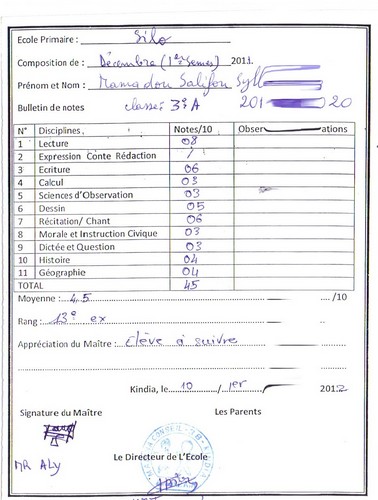 Ecole Primaire : Silo
Composition de : Décembre (1er Semes) 2011
Prénom et Nom : Mamadou Salifou Sylla
Bulletin de notes classe: 3è A 201 20
N° Disciplines Notes/10 Observations
1 Lecture 08
2 Expression Conte Rédaction /
3 Ecriture 06
4 Calcul 03
5 Sciences d'Observation 03
6 Dessin 05
7 Récitation/ Chant 06
8 Morale et Instruction Civique 03
9 Dictée et Question 03
10 Histoire 04
11 Géographie 04
TOTAL 45
Moyenne : 4,5 /10
Rang : 13è ex
Appréciation du Maître : élève à suivre
Kindia, le 10 / 1er / 2012
Signature du Maître Les Parents
Le Directeur de L'Ecole
MR ALY